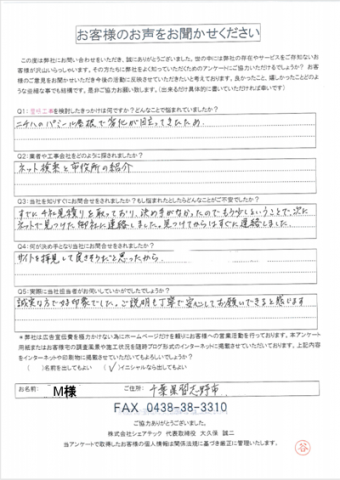 お客様のお声をお聞かせください
この度は弊社にお問い合わせをいただき、誠にありがとうございました。世の中には弊社の存在やサービスをご存知ないお
客様が沢山いらっしゃいます。その方たちに弊社をよく知っていただくためのアンケートにご協力いただけるでしょうか？ お客
様のご意見をお聞かせいただき今後の活動に反映させていただきたいと考えております。良かったこと、嬉しかったことどのよ
うな些細な事でも結構です。是非ご協力お願い致します。（出来るだけ具体的に書いていただければ幸いです）
Q1：塗り工事を検討したきっかけは何ですか？どんなことで悩まれていましたか？
ニチハのパミール屋根で劣化が目立ってきたため.
Q2：業者や工事会社をどのように探されましたか？
ネット検索と市役所の紹介
Q3：当社を知りすぐにお問合せをされましたか？もし悩まれたとしたらどんなことがご不安でしたか？
すでに 社見積りを取っており、決め手がなかったのでもう少しということで、次に
ネットで見つけた御社に連絡しました。見つけてからはすぐに連絡しました.
Q4：何が決め手となり当社にお問合せをされましたか？
サイトを拝見して良さそうだと思ったから.
Q5：実際に当社担当者がお伺いしていかがでしたでしょうか？
誠実な方で 印象でした。ご説明も丁寧で安心してお願いできると感じます
＊弊社は広告宣伝費を極力かけない為にホームページだけを頼りにお客様への営業活動を行っております。本アンケート
用紙またはお客様宅の調査風景や施工状況を随時ブログ形式のインターネットに掲載させていただいております。上記内容
をインターネットや印刷物に掲載させていただいてもよろしいでしょうか？
（　）名前を出してもよい　（✓）イニシャルなら出してもよい
お名前: M様 ご住所: 千葉県習志野市
FAX 0438-38-3310
ご協力ありがとうございました。
株式会社シェアテック 代表取締役 大久保 誠二
当アンケートで取得したお客様の個人情報は関係法規に基づき厳正に管理いたします。
谷